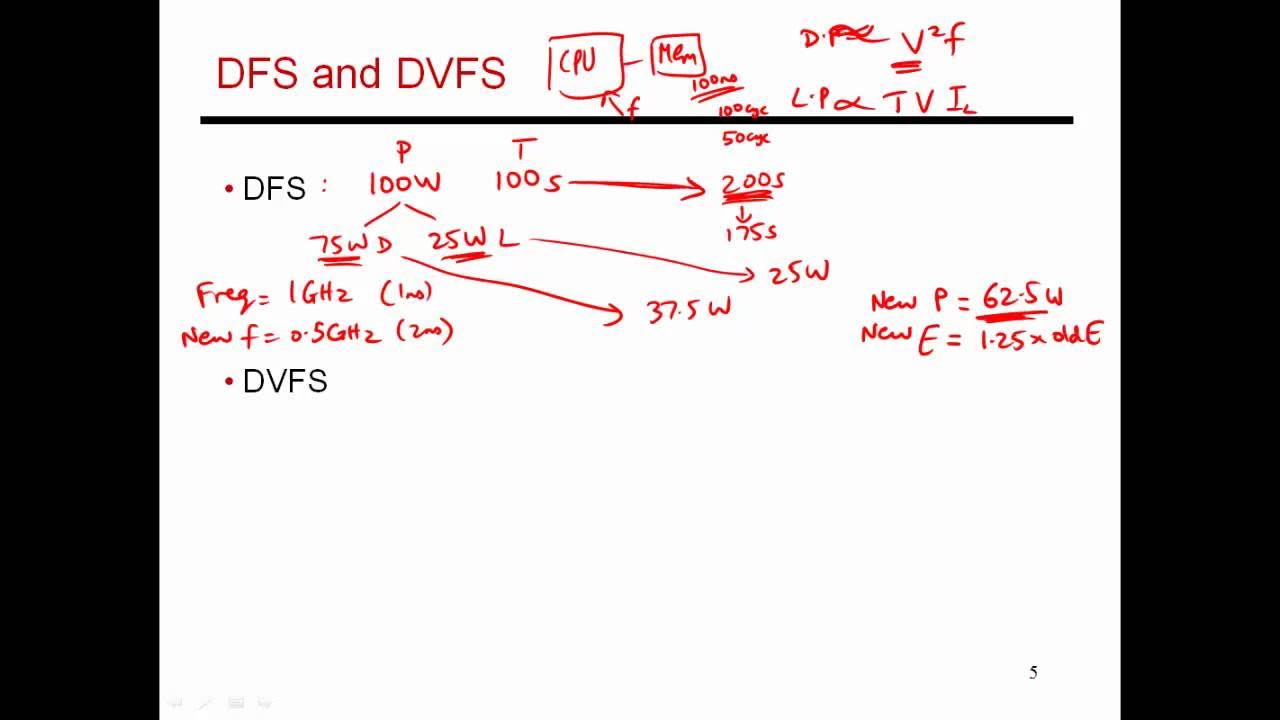 DFS and DVFS
CPU
Mem
f
100ns
100cyc
50cyc
D.P ∝ V²f
L.P ∝ T V I_L
P T
• DFS : 100W 100s 200s
175s
75W D 25W L
25W
37.5W
Freq = 1GHz (1ns)
New f = 0.5GHz (2ns)
New P = 62.5W
New E = 1.25x old E
• DVFS
5